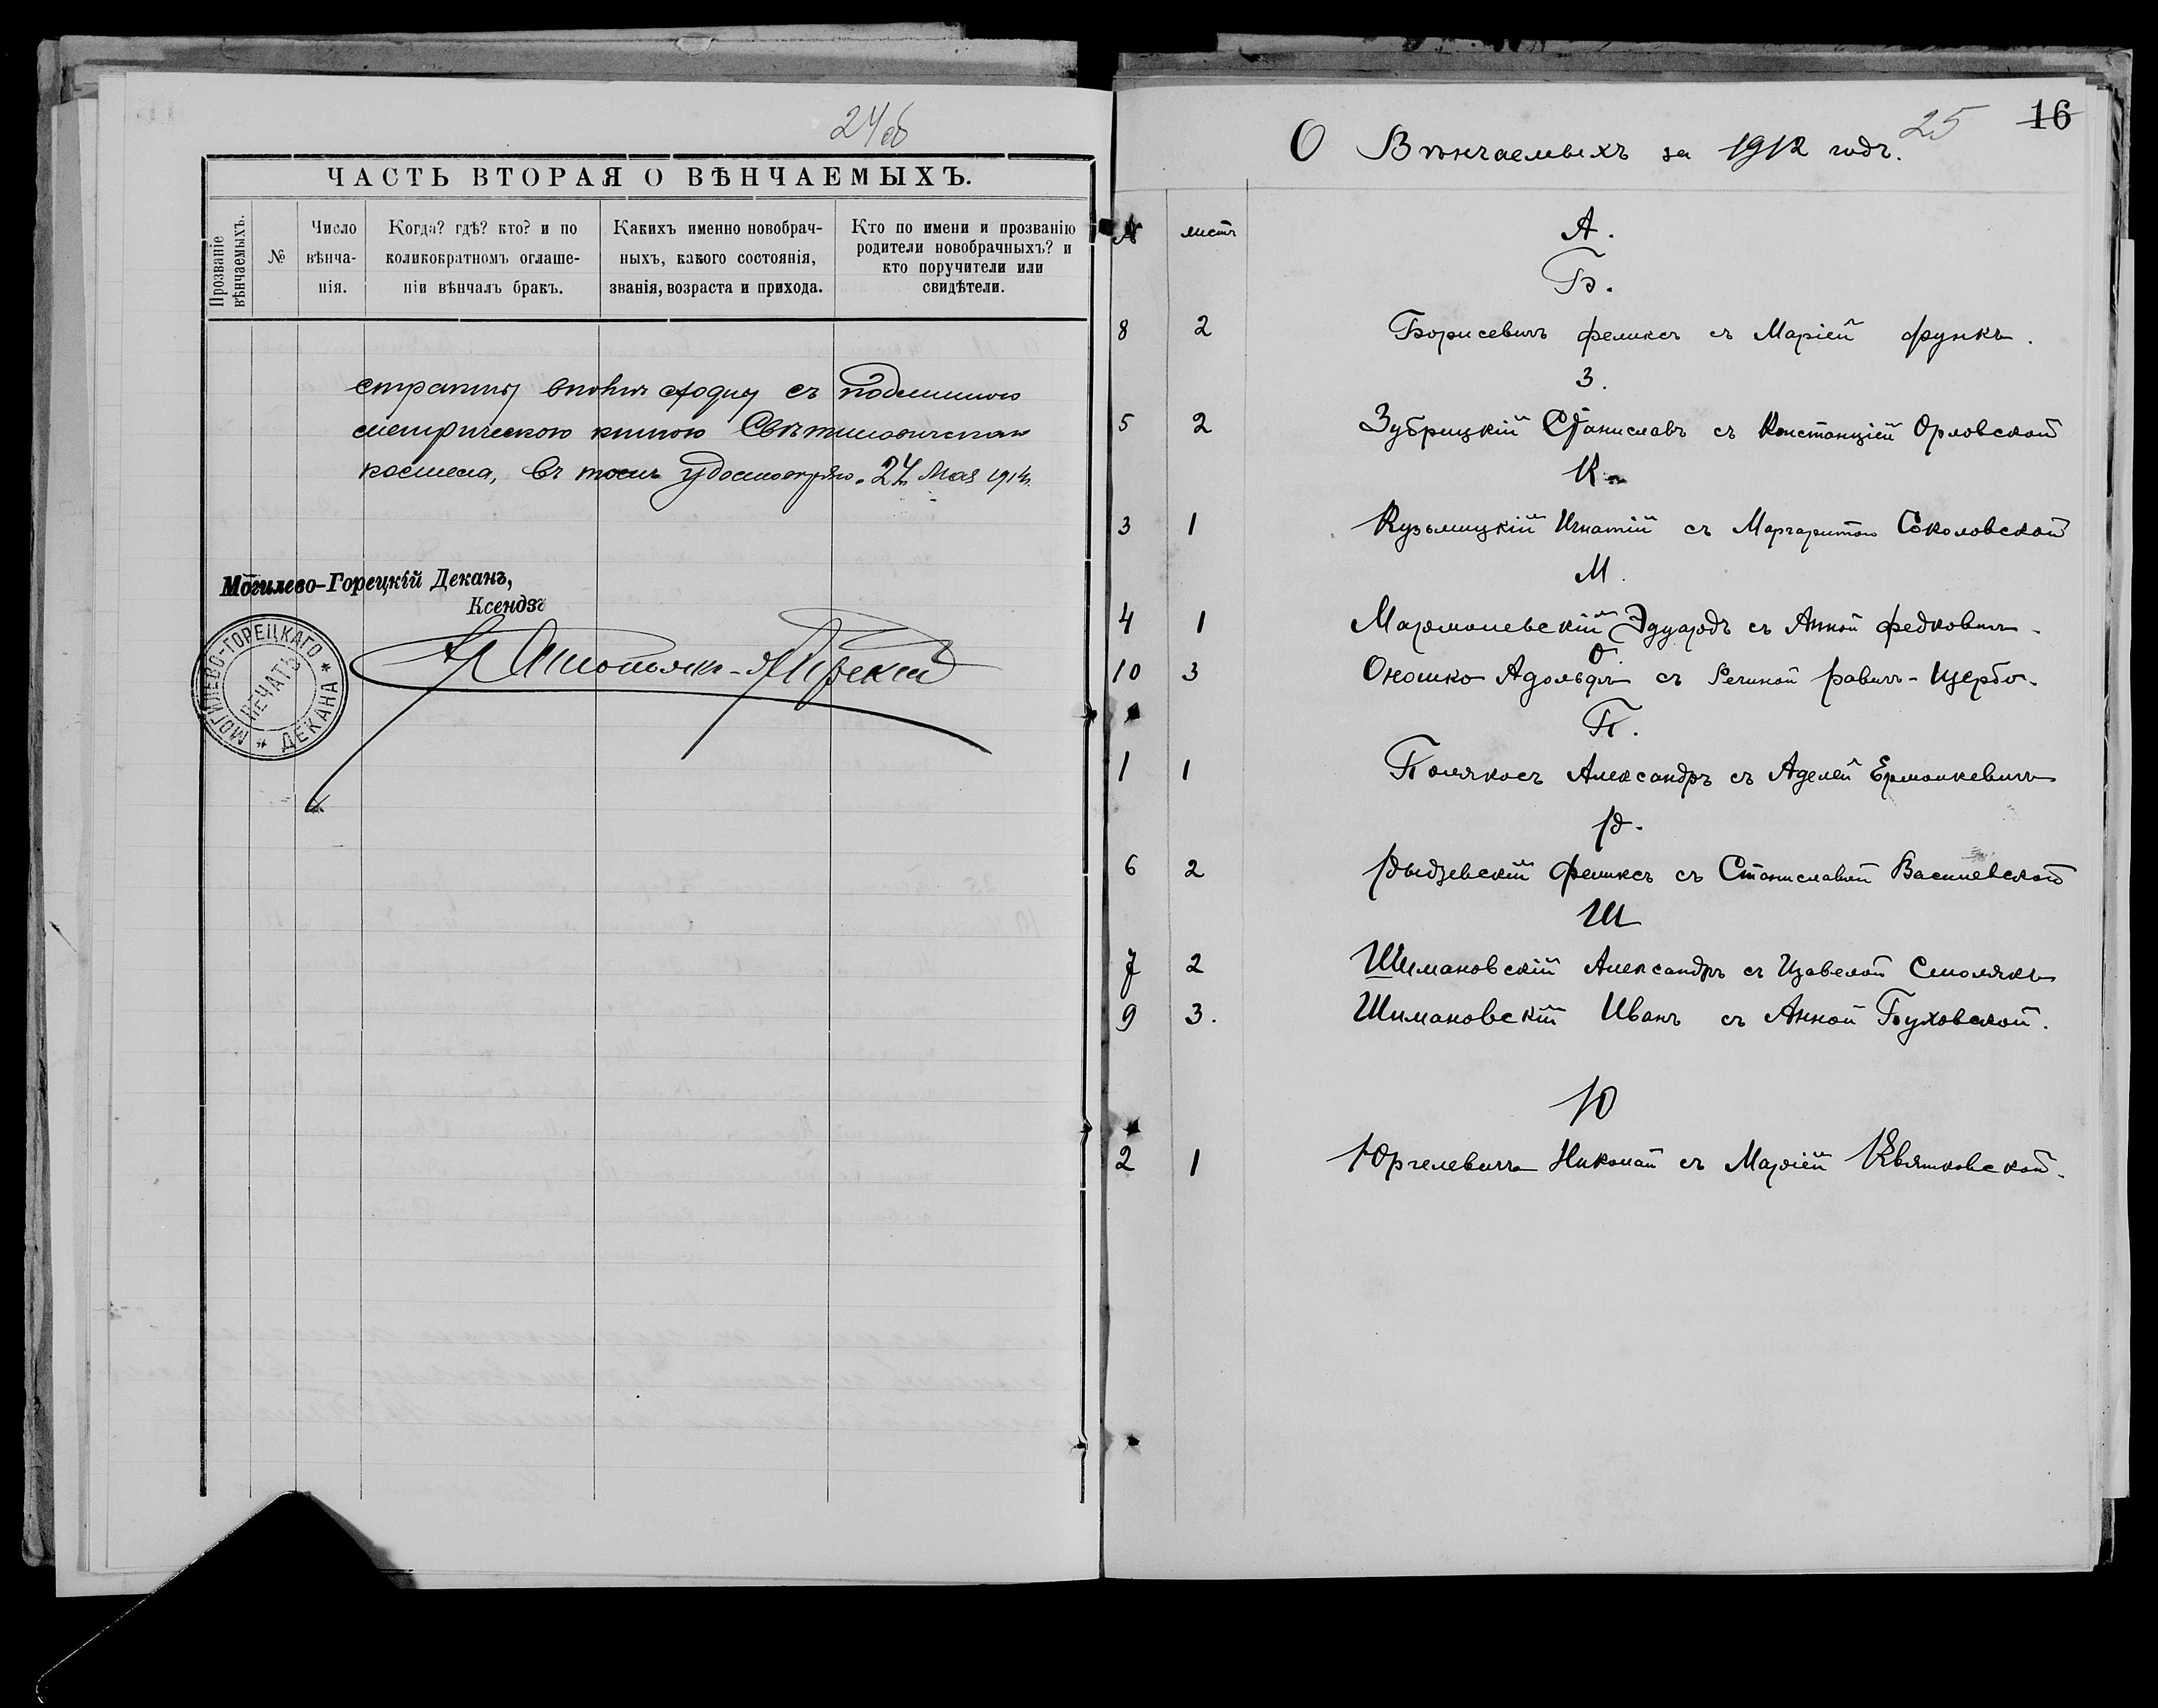 24об
ЧАСТЬ ВТОРАЯ О ВѢНЧАЕМЫХЪ.
Прозваніе вѣнчаемыхъ.
№
Число вѣнча-
нія.
Когда? гдѣ? кто? и по
коликократномъ оглаше-
ніи вѣнчалъ бракъ.
Какихъ именно новобрач-
ныхъ, какого состоянія,
званія, возраста и прихода.
Кто по имени и прозванію
родители новобрачныхъ? и
кто поручители или
свидѣтели.
вполнѣ сходну съ подлинною
метрическою книгою
костела, въ томъ удостовѣряю. 24 Мая 1914
Могилево-Горецкій Деканъ,
Ксендзъ
МОГИЛЕВО-ГОРЕЦКАГО * ДЕКАНА *
ПЕЧАТЬ
25
16
О Вѣнчаемыхъ за 1912 годъ.
№ листъ
А.
Б.
8 2 Борисевичъ Феликсъ съ Маріей Функъ.
З.
5 2 Зубрицкій Станиславъ съ Констанціей Орловской
К.
3 1 Кузьмицкій Игнатій съ Маргаритою Соколовской
М.
4 1 Мармолевскій Эдуардъ съ Анной Федковичъ.
О.
10 3 Оношко Адольфъ съ Региной Равичъ-Щерба.
П.
1 1 Полякосъ Александръ съ Аделей Ермолкевичъ
Р.
6 2 Рыдзевскій Феликсъ съ Станиславой Василевской
Ш
7 2 Шимановскій Александръ съ Изабелой Смолякъ
9 3. Шимановскій Иванъ съ Анной Буховской.
Ю
2 1 Юргелевичъ Николай съ Маріей Квятковской.